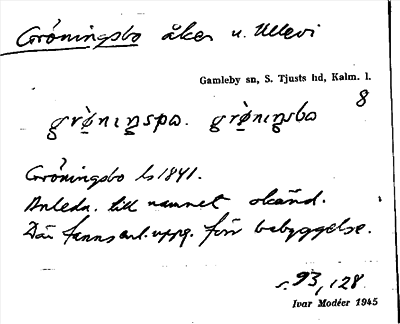 Gröningsbo åker u. Ullevi
Gamleby sn, S. Tjusts hd, Kalm. l.
8
Gröningsbo ls 1841.
Anledn. till namnet okänd.
Där fanns enl. uppg. förr bebyggelse.
s. 93, 128.
Ivar Modéer 1945